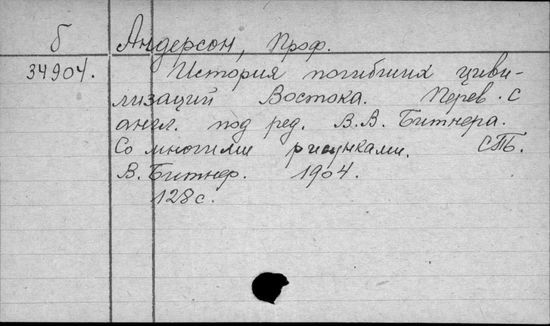 Б Андерсон, Проф.
34904. История погибших циви-
лизаций Востока. Перев. с
англ. под ред. В.В. Битнера.
Со многими рисунками. СПБ.
В. Битнер. 1904.
128 с.